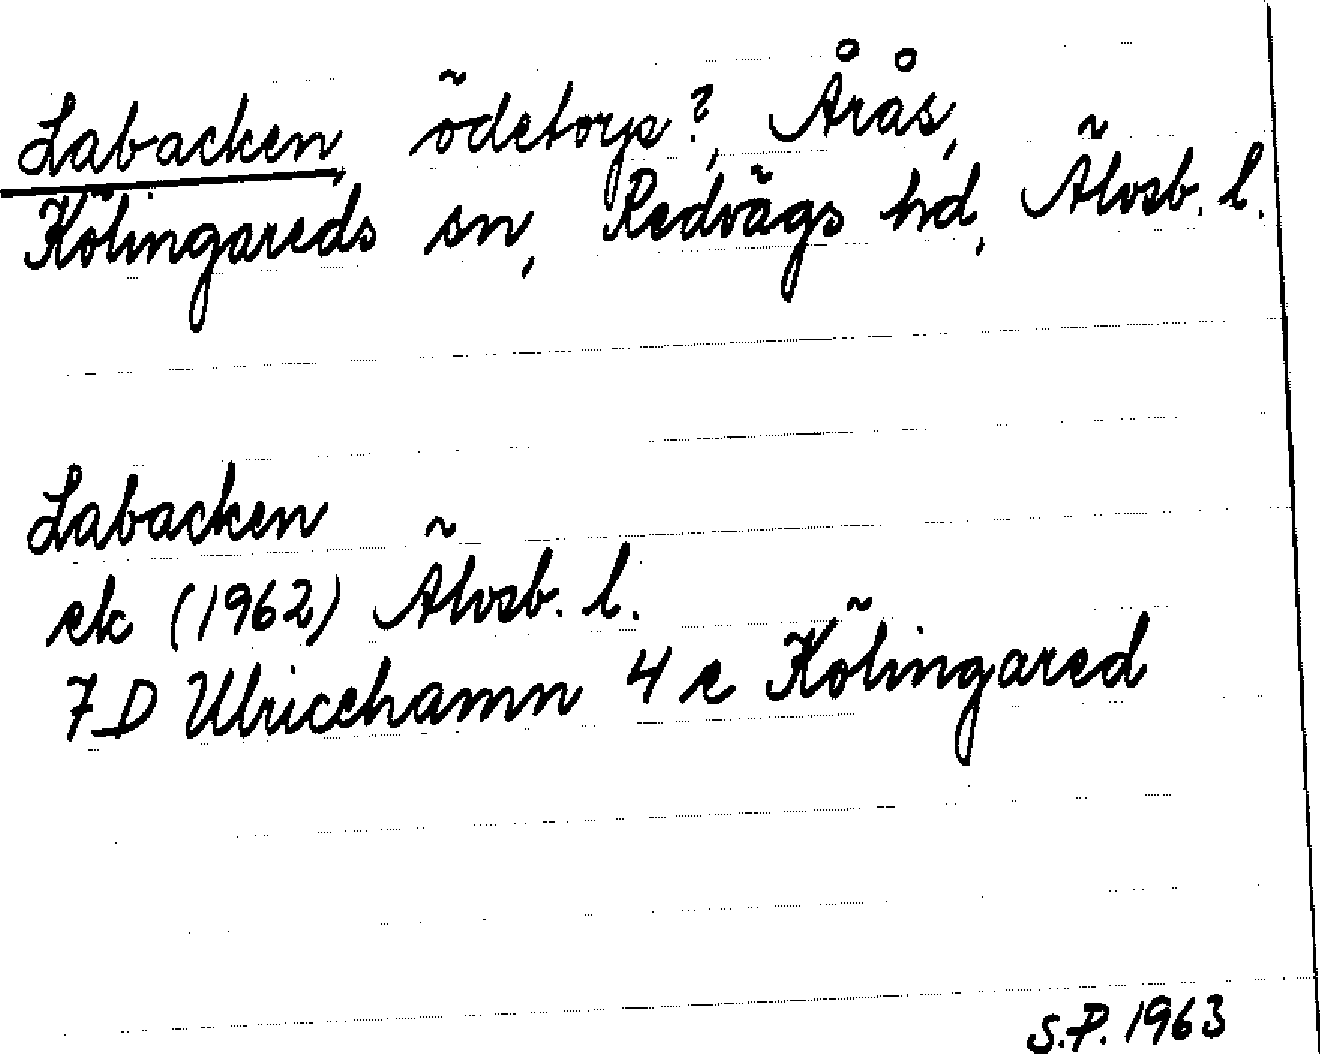 Labacken, ödetorp?, Årås,
Kölingareds sn, Redvägs hd, Älvsb. l.
Labacken
ek (1962) Älvsb. l.
7D Ulricehamn 4 e Kölingared
S.P. 1963